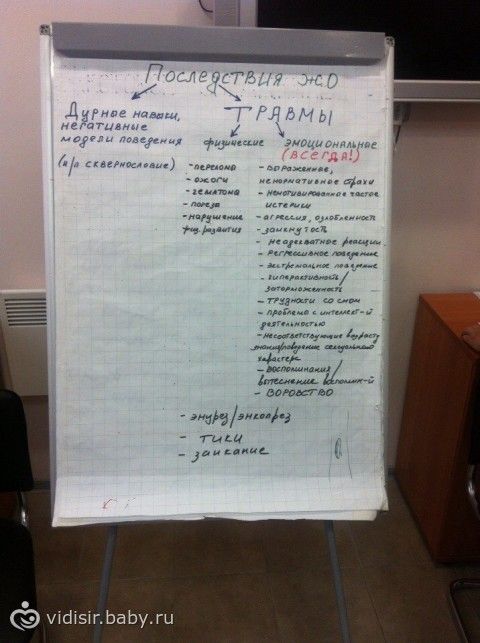 Последствия ЖО
Дурные навыки,
негативные
модели поведения
(н/п сквернословие)
ТРАВМЫ
физические
- переломы
- ожоги
- гематома
- порезы
- нарушение
физ. развития
эмоциональные
(ВСЕГДА!)
- выраженные,
ненормативные страхи
- немотивированные частые
истерики
- агрессия, озлобленность
- замкнутость
- неадекватные реакции
- регрессивное поведение
- экстремальное поведение
- гиперактивность/
заторможенность
- трудности со сном
- проблемы с интеллект-й
деятельностью
- несоответствующие возрасту
знания/поведение сексуального
характера
- воспоминания/
вытеснение воспомин-й
- ВОРОВСТВО
- энурез/энкопрез
- тики
- заикание
vidisir.baby.ru